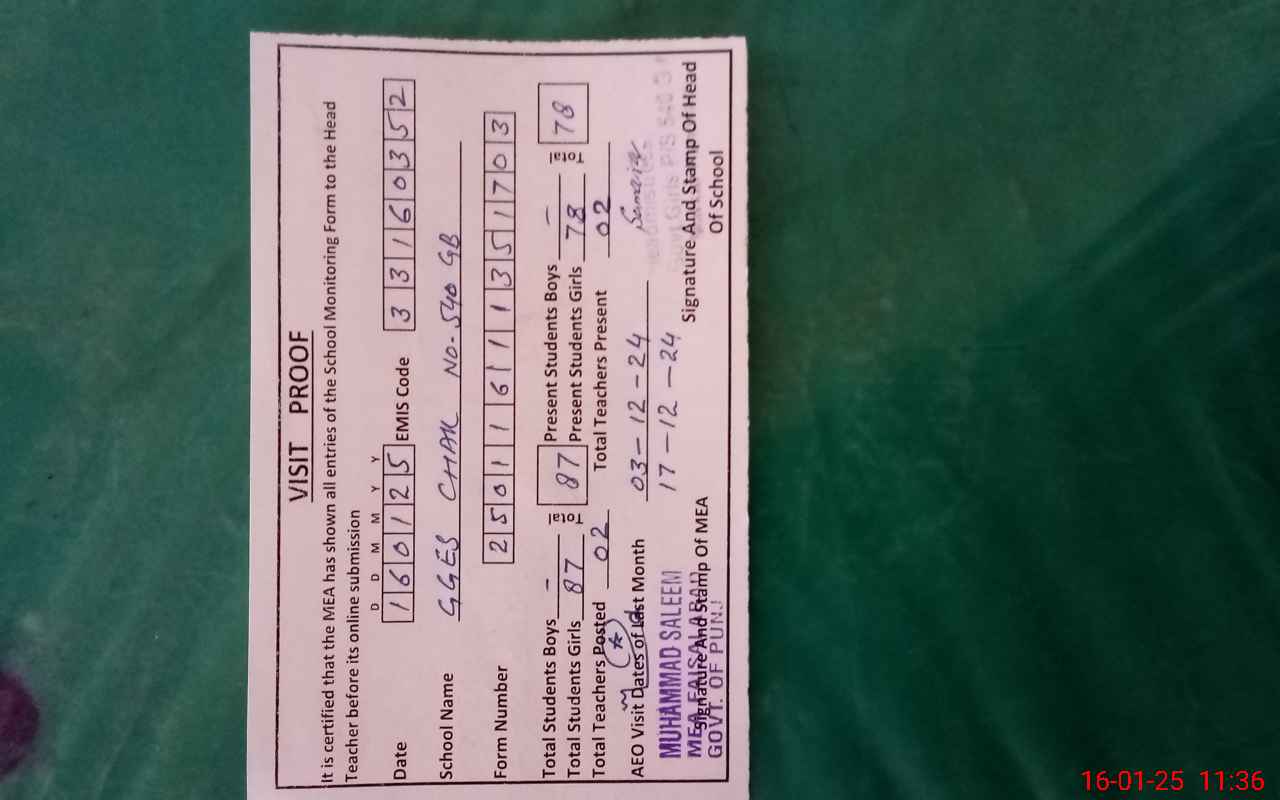 VISIT PROOF
It is certified that the MEA has shown all entries of the School Monitoring Form to the Head
Teacher before its online submission
D D M M Y Y
Date 160125 EMIS Code 33160352
School Name GGES CHAK NO. 540 GB
Form Number 25011611351703
Total Students Boys - Total 87 Present Students Boys - Total 78
Total Students Girls 87 Present Students Girls 78
Total Teachers Posted 02 Total Teachers Present 02
AEO Visit Dates of Last Month 03-12-24
17-12-24
MUHAMMAD SALEEM
MEA FAISALABAD
GOVT. OF PUNJ
Signature And Stamp Of MEA
Signature And Stamp Of Head
Of School
16-01-25 11:36